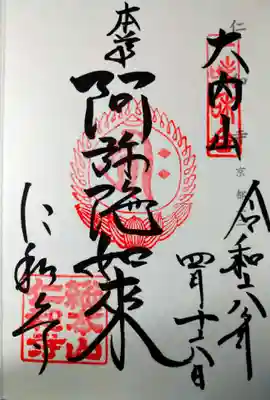 大内山
仁和寺 京都
令和六年
四月十六日
本尊
阿弥陀如来
仁和寺
総本山
仁和寺